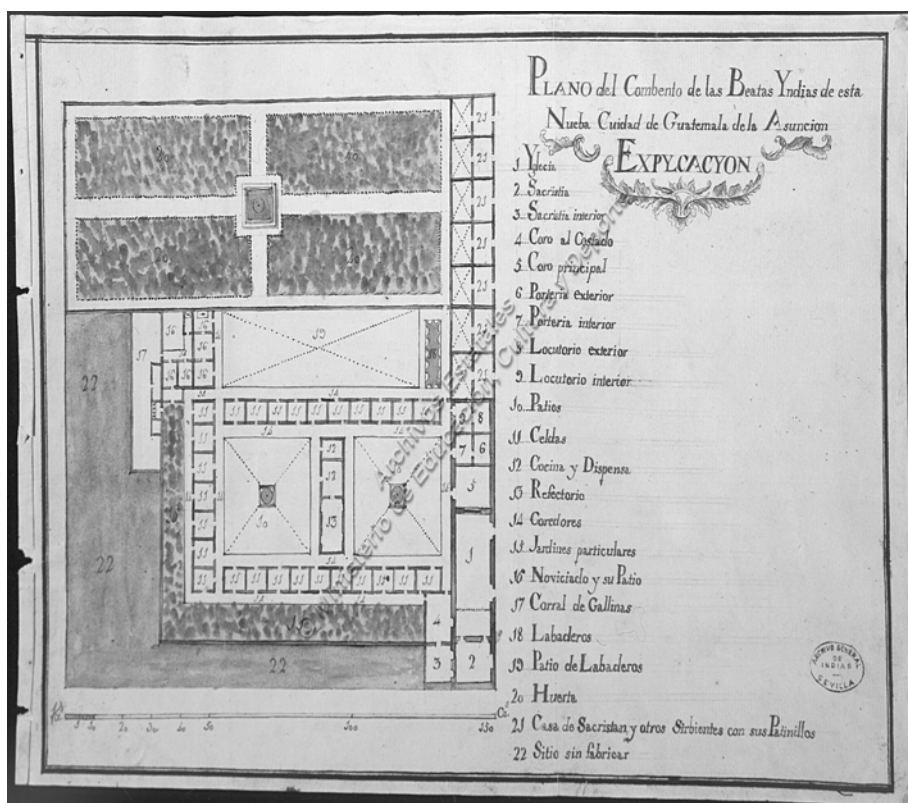 PLANO del Combento de las Beatas Yndias de esta
Nueba Cuidad de Guatemala de la Asuncion
EXPLCACYON
1 Yglecia
2 Sacristia
3 Sacristia interior
4 Coro al Costado
5 Coro principal
6 Porteria exterior
7 Porteria interior
8 Locutorio exterior
9 Locutorio interior
10 Patios
11 Celdas
12 Cocina y Dispensa
13 Refectorio
14 Coredores
15 Jardines particulares
16 Noviciado y su Patio
17 Corral de Gallinas
18 Labaderos
19 Patio de Labaderos
20 Huerta
21 Casa de Sacristan y otros Sirbientes con sus Patinillos
22 Sitio sin fabricar
ARCHIVO GENERAL
DE
INDIAS
SEVILLA
Archivos Estatales
Ministerio de Educación, Cultura y Deporte